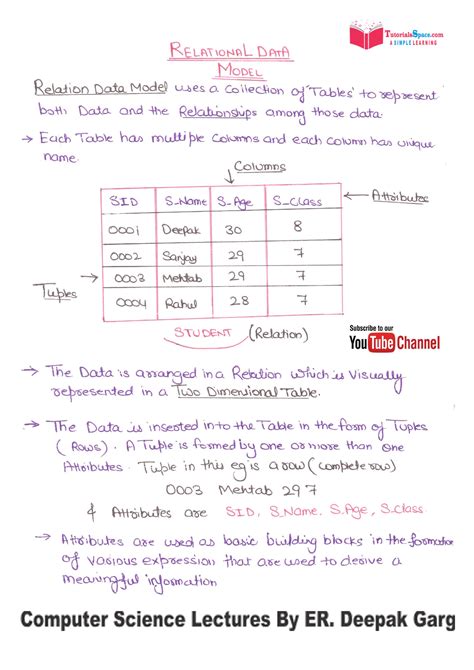 TutorialsSpace.com
A SIMPLE LEARNING
RELATIONAL DATA
MODEL
Relation Data Model uses a Collection of 'Tables' to represent
both Data and the Relationships among those data.
→ Each Table has multiple Columns and each column has unique
name.
Columns
SID S_Name S_Age S_Class
Attributes
0001 Deepak 30 8
0002 Sanjay 29 7
0003 Mehtab 29 7
Tuples
0004 Rahul 28 7
STUDENT (Relation)
Subscribe to our
YouTube Channel
→ The Data is arranged in a Relation which is Visually
represented in a Two Dimensional Table.
→ The Data is inserted into the Table in the form of Tuples
(Rows). A Tuple is formed by one or more than one
Attributes. Tuple in this eg is a row (complete row)
0003 Mehtab 29 7
& Attributes are SID, S.Name, S.Age, S.Class
→ Attributes are used as basic building blocks in the formation
of various expression that are used to derive a
meaningful information
Computer Science Lectures By ER. Deepak Garg